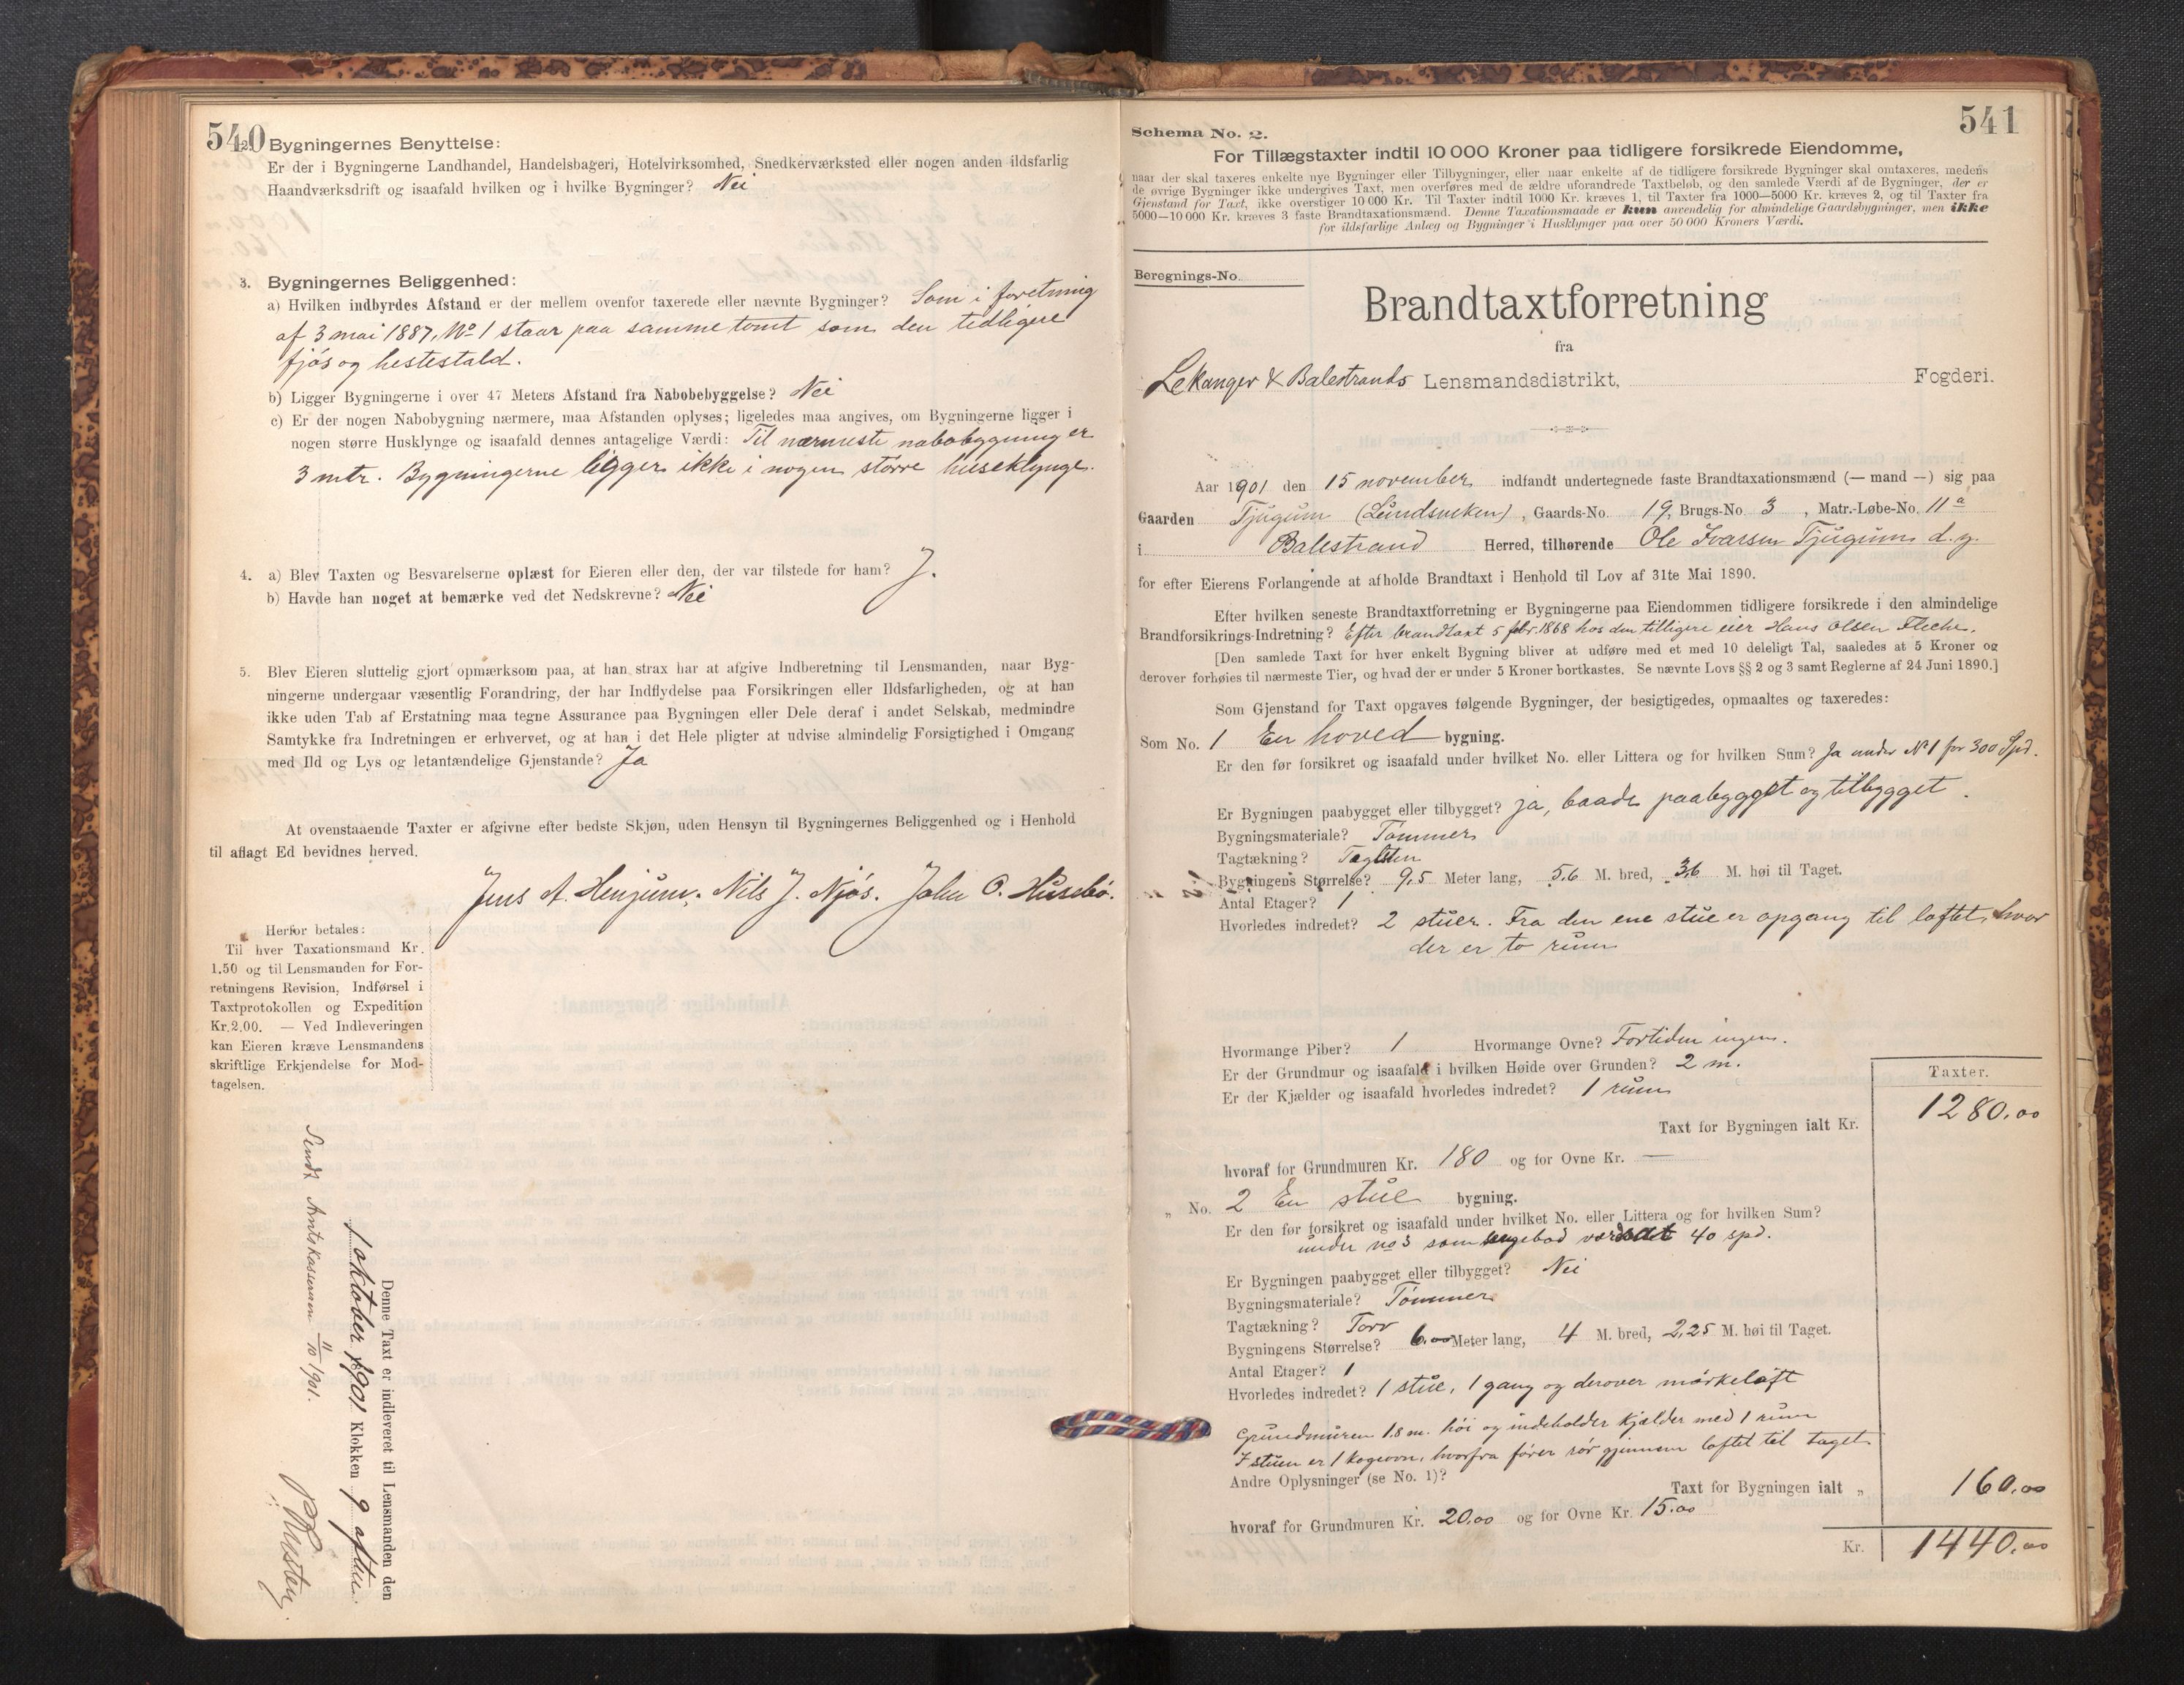 540
2. Bygningernes Benyttelse:
Er der i Bygningerne Landhandel, Handelsbageri, Hotelvirksomhed, Snedkerværksted eller nogen anden ildsfarlig
Haandværksdrift og isaafald hvilken og i hvilke Bygninger? Nei
3. Bygningernes Beliggenhed:
a) Hvilken indbyrdes Afstand er der mellem ovenfor taxerede eller nævnte Bygninger? Som i forretning
af 3 mai 1887, No 1 staar paa samme tomt som den tidligere
fjøs og hestestald.
b) Ligger Bygningerne i over 47 Meters Afstand fra Nabobebyggelse? Nei
c) Er der nogen Nabobygning nærmere, maa Afstanden oplyses; ligeledes maa angives, om Bygningerne ligger i
nogen større Husklynge og isaafald dennes antagelige Værdi: Til nærmeste nabobygning er
3 mtr. Bygningerne ligger ikke i nogen større huseklynge.
4. a) Blev Taxten og Besvarelserne oplæst for Eieren eller den, der var tilstede for ham? J.
b) Havde han noget at bemærke ved det Nedskrevne? Nei
5. Blev Eieren sluttelig gjort opmærksom paa, at han strax har at afgive Indberetning til Lensmanden, naar Byg-
ningerne undergaar væsentlig Forandring, der har Indflydelse paa Forsikringen eller Ildsfarligheden, og at han
ikke uden Tab af Erstatning maa tegne Assurance paa Bygningen eller Dele deraf i andet Selskab, medmindre
Samtykke fra Indretningen er erhvervet, og at han i det Hele pligter at udvise almindelig Forsigtighed i Omgang
med Ild og Lys og letantændelige Gjenstande? Ja
At ovenstaaende Taxter er afgivne efter bedste Skjøn, uden Hensyn til Bygningernes Beliggenhed og i Henhold
til aflagt Ed bevidnes herved.
Jens A. Henjum. Nils J. Njøs. John O. Husebø.
Herfor betales:
Til hver Taxationsmand Kr.
1.50 og til Lensmanden for For-
retningens Revision, Indførsel i
Taxtprotokollen og Expedition
Kr. 2.00. — Ved Indleveringen
kan Eieren kræve Lensmandens
skriftlige Erkjendelse for Mod-
tagelsen.
Denne Taxt er indleveret til Lensmanden den
1 oktober 1901 Klokken 9 aften.
Sendt Amtskasseraren 11/10 1901.
541
Schema No. 2.
For Tillægstaxter indtil 10 000 Kroner paa tidligere forsikrede Eiendomme,
naar der skal taxeres enkelte nye Bygninger eller Tilbygninger, eller naar enkelte af de tidligere forsikrede Bygninger skal omtaxeres, medens
de øvrige Bygninger ikke undergives Taxt, men overføres med de ældre uforandrede Taxtbeløb, og den samlede Værdi af de Bygninger, der er
Gjenstand for Taxt, ikke overstiger 10 000 Kr. Til Taxter indtil 1000 Kr. kræves 1, til Taxter fra 1000—5000 Kr. kræves 2, og til Taxter fra
5000—10 000 Kr. kræves 3 faste Brandtaxationsmænd. Denne Taxationsmaade er kun anvendelig for almindelige Gaardsbygninger, men ikke
for ildsfarlige Anlæg og Bygninger i Husklynger paa over 50 000 Kroners Værdi.
Beregnings-No.
Brandtaxtforretning
fra
Lekanger & Balestrands Lensmandsdistrikt, Fogderi.
Aar 1901 den 15 november indfandt undertegnede faste Brandtaxationsmænd (— mand —) sig paa
Gaarden Tjugum (Lundsviken), Gaards-No. 19, Brugs-No. 3, Matr.-Løbe-No. 11 a
i Balestrand Herred, tilhørende Ole Ivarsen Tjugum d. y.
for efter Eierens Forlangende at afholde Brandtaxt i Henhold til Lov af 31te Mai 1890.
Efter hvilken seneste Brandtaxtforretning er Bygningerne paa Eiendommen tidligere forsikrede i den almindelige
Brandforsikrings-Indretning? Efter brandtaxt 5 febr. 1868 hos den tilligere eier Hans Olsen Fleche.
[Den samlede Taxt for hver enkelt Bygning bliver at udføre med et med 10 deleligt Tal, saaledes at 5 Kroner og
derover forhøies til nærmeste Tier, og hvad der er under 5 Kroner bortkastes. Se nævnte Lovs §§ 2 og 3 samt Reglerne af 24 Juni 1890.]
Som Gjenstand for Taxt opgaves følgende Bygninger, der besigtigedes, opmaaltes og taxeredes:
Som No. 1 En hoved bygning.
Er den før forsikret og isaafald under hvilket No. eller Littera og for hvilken Sum? Ja under No 1 for 300 Spd.
Er Bygningen paabygget eller tilbygget? ja, baade paabygget og tilbygget.
Bygningsmateriale? Tømmer
Tagtækning? Taglsten
Bygningens Størrelse? 9,5 Meter lang, 5,6 M. bred, 3,6 M. høi til Taget.
Antal Etager? 1
Hvorledes indredet? 2 stuer. Fra den ene stue er opgang til loftet, hvor
der er to rum
Hvormange Piber? 1 Hvormange Ovne? Fortiden ingen.
Er der Grundmur og isaafald i hvilken Høide over Grunden? 2 m.
Er der Kjælder og isaafald hvorledes indredet? 1 rum
Taxter.
Taxt for Bygningen ialt Kr. 1280,00
hvoraf for Grundmuren Kr. 180 og for Ovne Kr. —
„ No. 2 En stue bygning.
Er den før forsikret og isaafald under hvilket No. eller Littera og for hvilken Sum?
under no 3 som sengebod værdsatt 40 spd.
Er Bygningen paabygget eller tilbygget? Nei
Bygningsmateriale? Tømmer
Tagtækning? Torv
Bygningens Størrelse? 6,00 Meter lang, 4 M. bred, 2,25 M. høi til Taget.
Antal Etager? 1
Hvorledes indredet? 1 stue, 1 gang og derover mørkeloft
Grundmuren 1.8 m. høi og indeholder kjælder med 1 rum
I stuen er 1 kogeovn, hvorfra fører rør gjennem loftet til taget.
Andre Oplysninger (se No. 1)?
Taxt for Bygningen ialt „ 160,00
hvoraf for Grundmuren Kr. 20,00 og for Ovne Kr. 15,00
Kr. 1440,00